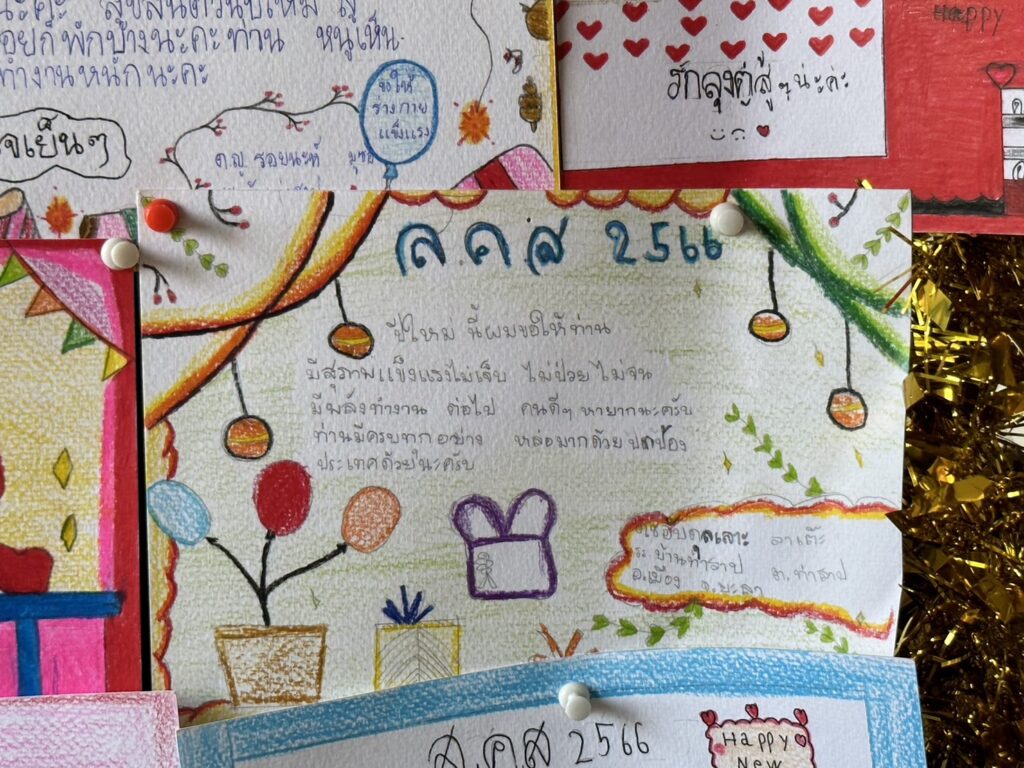 นะคะ สุขสันต์วันปีใหม่
พักบ้างนะคะท่าน หนูเห็น
ทำงานหนักนะคะ
เย็นๆ
ขอให้
ร่างกาย
แข็งแรง
ด.ญ.
รักลุงตู่สู้ๆนะคะ
Happy
ส.ค.ส 2566
ปีใหม่ นี้ผมขอให้ท่าน
มีสุภาพแข็งแรงไม่เจ็บ ไม่ป่วย ไม่จน
มีพลังทำงาน ต่อไป คนดีๆ หายากนะครับ
ท่านมีครบทุกอย่าง หล่อมากด้วย ปกป้อง
ประเทศด้วยนะครับ
ลาเต๊ะ
รร. บ้านท่าสาป ต.ท่าสาป
อ.เมือง จ.ยะลา
ส.ค.ส 2566
Happy
New